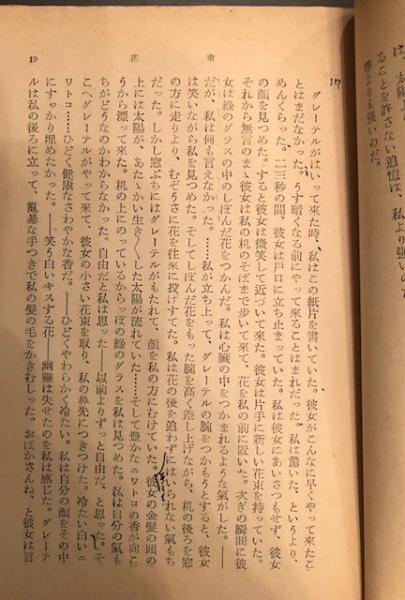 は、太陽が
ることを許さない追憶は、私より強いのだ。
膝よりも强いのだ。
花束
19
グレーテルがはいって來た時、私はこの紙片を書いていた。彼女がこんなに早くやって來たこ
とはまだなかった。うす暗くなる前にやって來ることはまれだった。私は驚いた、というより、
めんくらった。二三秒の間、彼女は戸口に立ち止まっていた。私は彼女にあいさつもせず、彼女
の顏を見つめた。すると彼女は微笑して近づいて來た。彼女は片手に新しい花束を持っていた。
それから無言のまゝ彼女は私の机のそばまで歩いて來て、花を私の前に置いた。次ぎの瞬間に彼
女は綠のグラスの中のしぼんだ花をつかんだ。私は心臟の中をつかまれるような氣がした。――
だが、私は何も言えなかった。……私が立ち上って、グレーテルの腕をつかもうとすると、彼女
は笑いながら私を見つめた。そしてしぼんだ花をもった腕を高く差し上げながら、机の後ろを窓
の方に走りより、むぞうさに花を往來に投げすてた。私は花の後を追わずにはいられない氣もち
だった。しかし窓ぶちにはグレーテルがもたれて、顏を私の方にむけていた。彼女の金髮の頭の
上には太陽が、あたゝかい生き〱した太陽が流れていた……そして豊かなニワトコの香が向こ
うから漂って來た。机の上にのっているからっぽの綠のグラスを私は見つめた。私は自分の氣も
ちがどうなのかわからなかった。自由だと私は思った――以前よりずっと自由だ、と思った。そ
こへグレーテルがやって來て、彼女の小さい花束を取り、私の鼻先につきつけた。冷たい白いニ
ワトコ……ひどく健康なさわやかな香だ。――ひどくやわらかく冷たい。私は自分の顏をその中
にすっかり埋めたかった。――笑う白いキスする花――幽靈は失せたのを私は感じた。グレーテ
ルは私の後ろに立って、亂暴な手つきで私の髮の毛をかきむしった。おばかさんね、と彼女は言